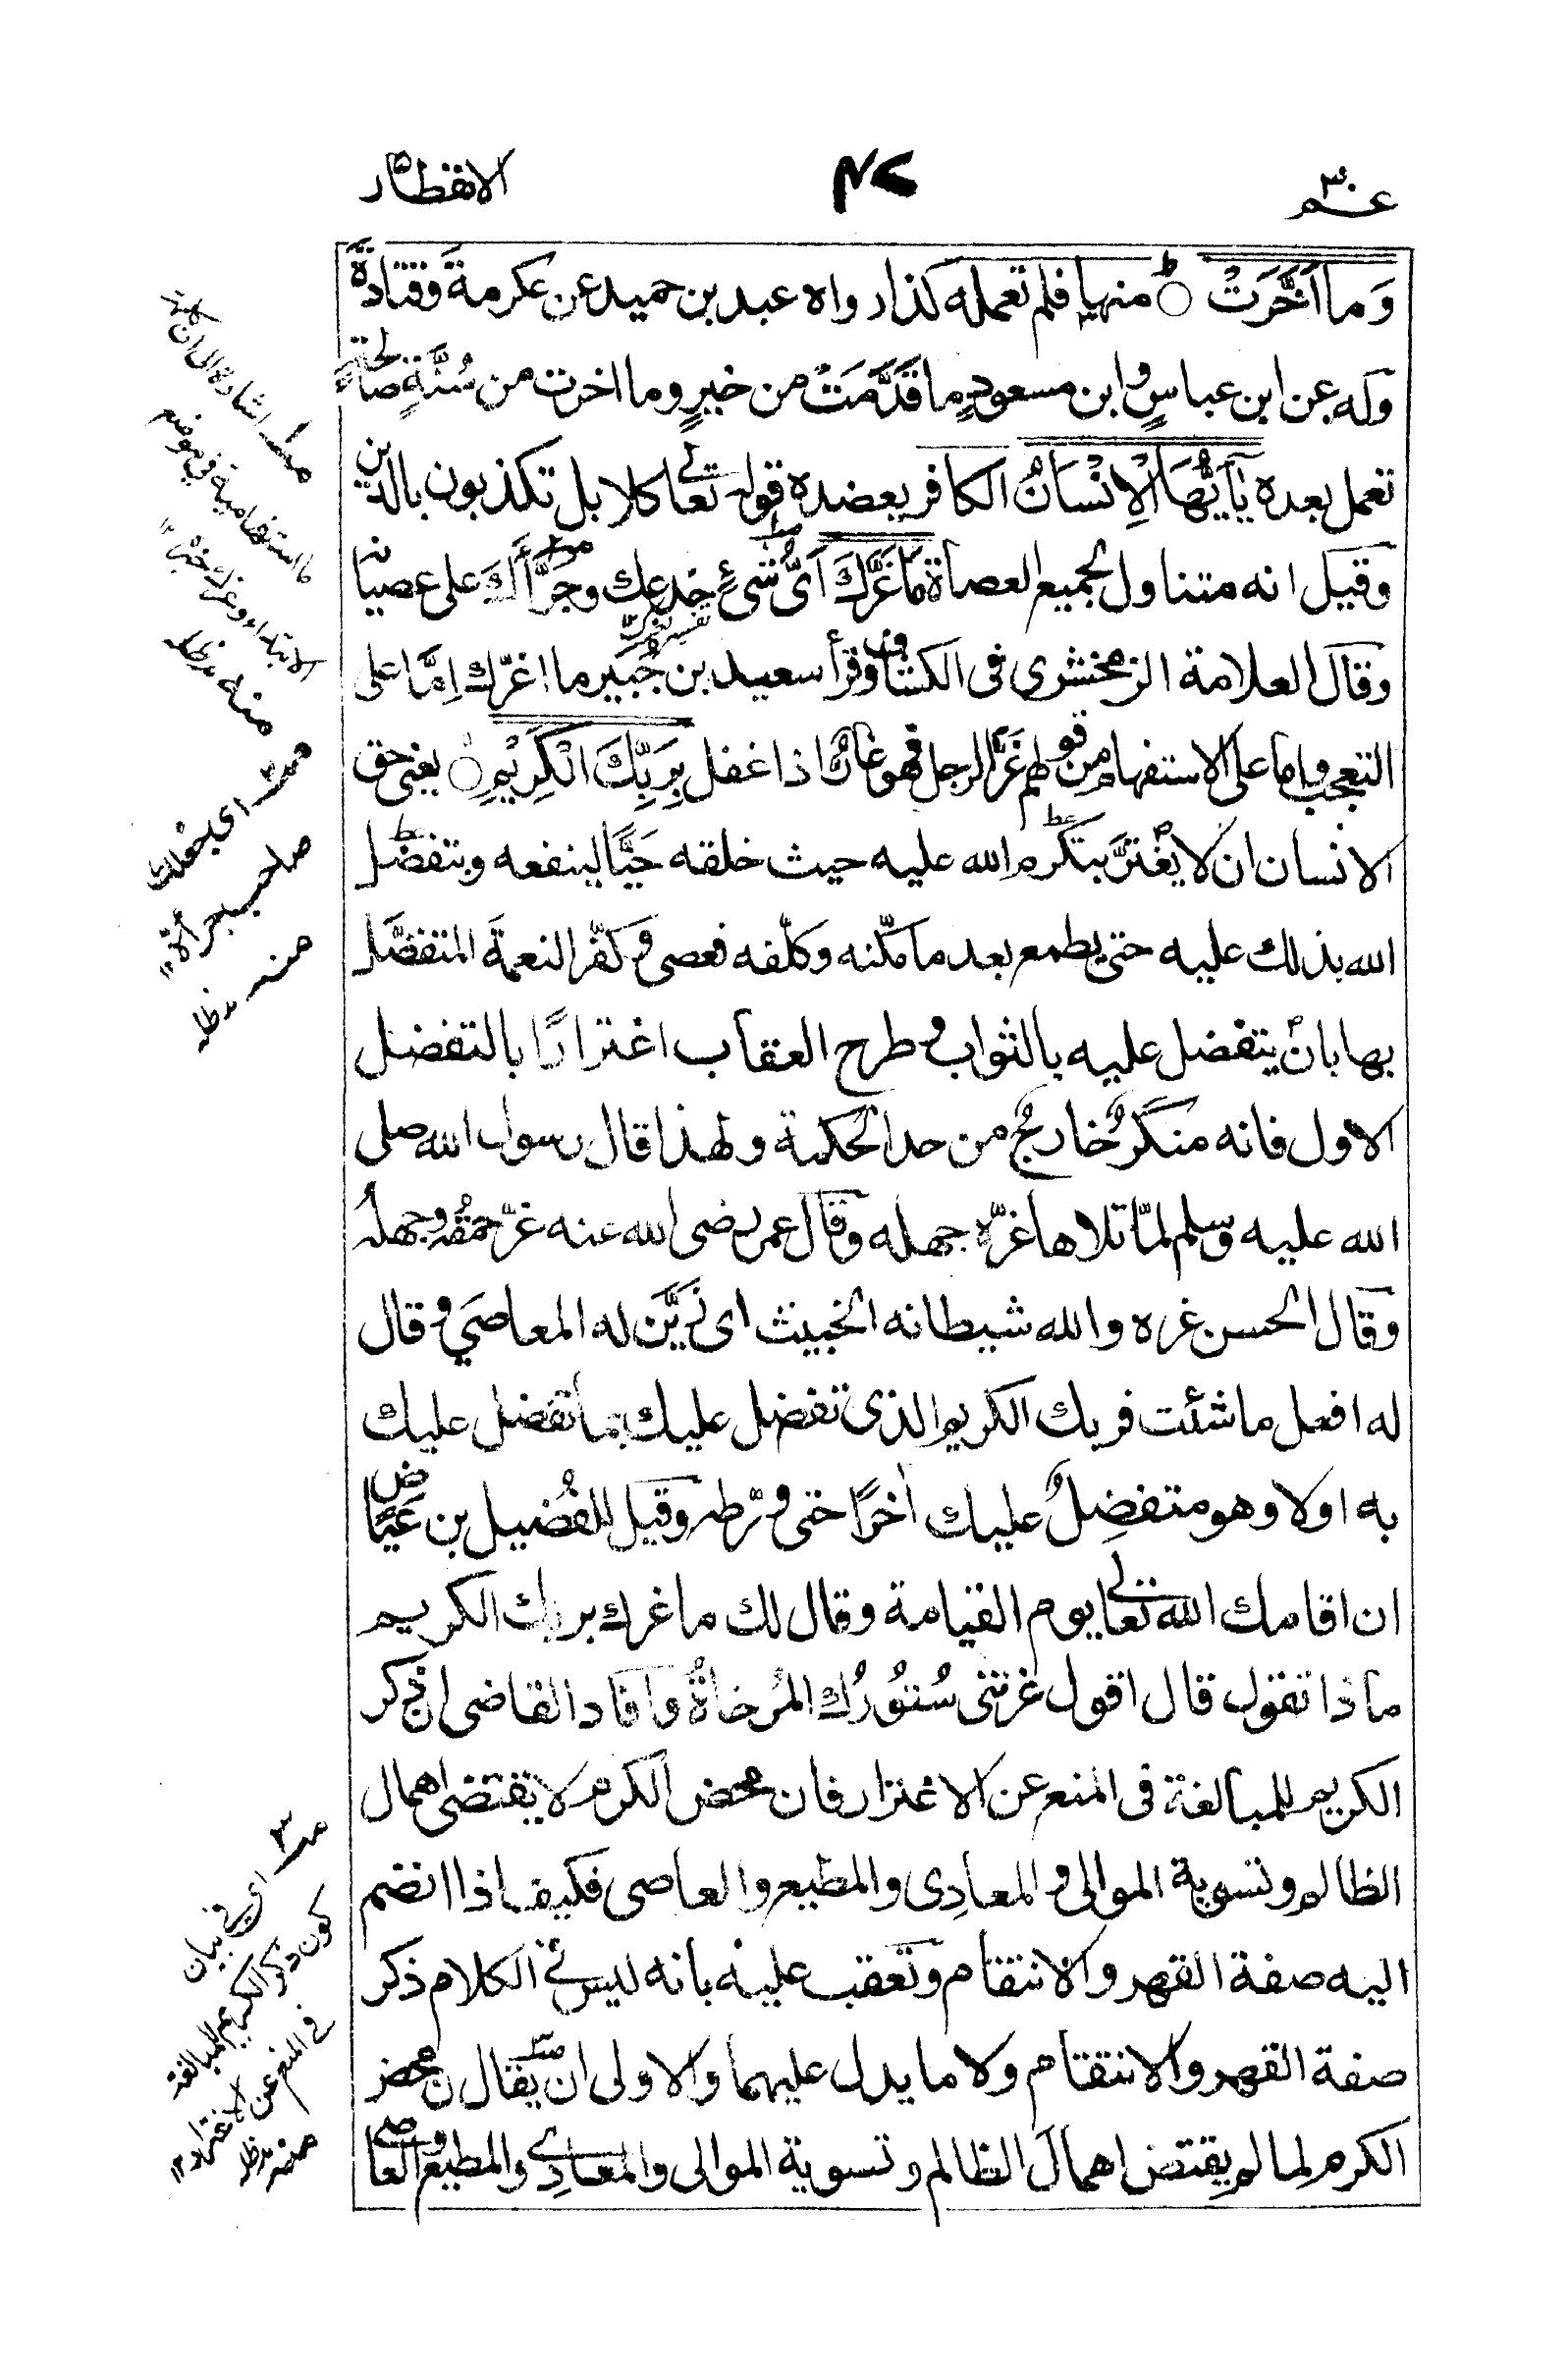 عـم ٣٠
٤٧
الانفطار
وَمَا أَخَّرَتْ منها فلم تعمله كذا رواه عبد بن حميد عن عكرمة وقتادة
وله عن ابن عباسٍ و ابن مسعودٍ ما قَدَّمَتْ من خيرٍ وما اخرت من سُنَّةٍ صالحة
تعمل بعده يٰٓاَيُّهَا الْاِنْسَانُ الكافر يعضده قوله تعالى كلا بل تكذبون بالدين
وقيل انه متناول لجميع العصاة مَا غَرَّكَ اَىُّ شىءٍ خدعك وجَرَّأَكَ على عصيانه
وقال العلامة الزمخشرى فى الكشاف وقرأ سعيد بن جُبَير ما اغرّك اِمَّا على
التعجب واما على الاستفهام من قولهم غَرَّ الرجل فهو غارٌّ اذا غفل بِرَبِّكَ الْكَرِيْمِ يعنى حق
الانسان ان لا يغْتَرَّ بتكرّم الله عليه حيث خلقه حَيًّا لينفعه وبتفضّل
الله بذلك عليه حتى يطمع بعد ما مكّنه وكلّفه فعصى و كفّر النعمةَ المتفضَّل
بها بان يتفضل عليه بالثواب و طرح العقاب اغترارًا بالتفضل
الاول فانه منكَرٌ خارجٌ من حد الحكمة ولهذا قال رسول الله صلى
الله عليه وسلم لمّا تلاها غرّه جهله وقال عمر رضى الله عنه غرّه حمقُه وجهلُه
وقال الحسن غره والله شيطانه الخبيث اى زَيَّن له المعاصَي و قال
له افعل ما شئت فربك الكريم الذى تفضل عليك بما تفضل عليك
به اولا وهو متفضِلٌ عليك اٰخرًا حتى و رّطه وقيل للفُضيل بن عَيَّاض
ان اقامك الله تعالى يوم القيامة وقال لك ما غرك بربك الكريم
ماذا تقول قال اقول غرتنى سُتُورُك المُرخاةُ وافاد القاضى ان ذكر
الكريم للمبالغة فى المنع عن الاغترار فان محض الكرم لا يقتضى اهمال
الظالم وتسوية الموالى و المعادِى والمطيع والعاصى فكيف اذا انضم
اليه صفة القهر والانتقام وتعقب عليه بانه ليس فى الكلام ذكر
صفة القهر والانتقام ولا ما يدل عليهما والاولى ان يقال ان محض
الكرم لِما لم يقتض اهمالَ الظالم وتسوية الموالى والمعادِى والمطيع والعاصى
اشارة الى ان كلمة
ما استفهامية فى موضع
الابتداء وغرك خبره ١٢
منه مدظله
اى يجعلك
صاحب جرأة ١٢
منه مدظله
اى فى بيان
كون ذكر الكريم للمبالغة
فى المنع عن الاغترار ١٢
منه مدظله